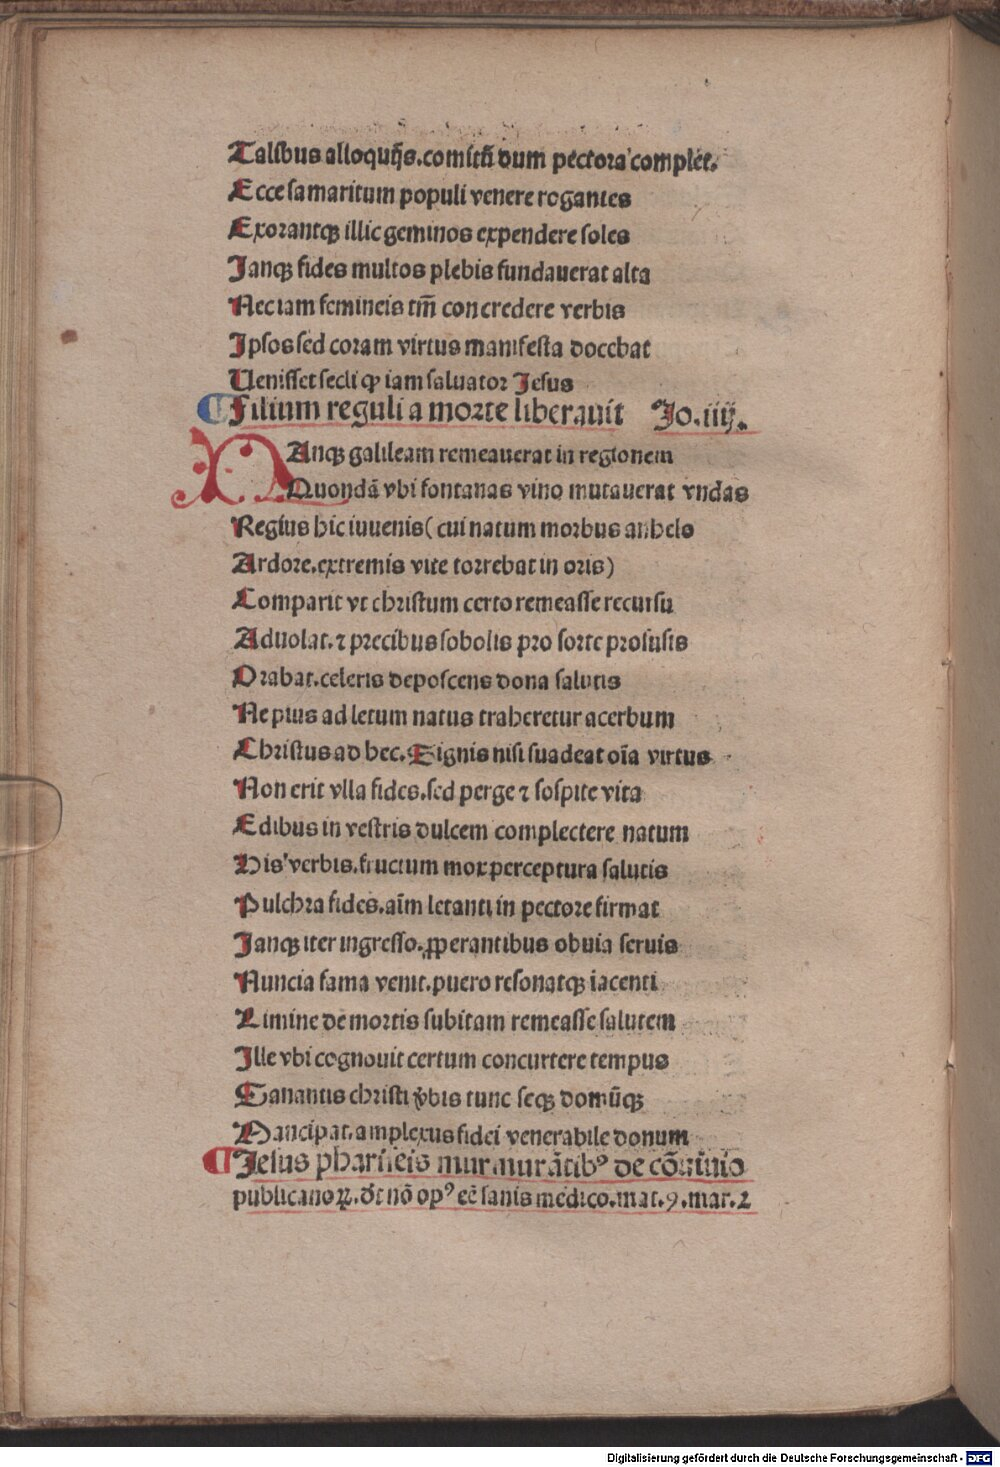 Talibus alloquijs.comitũ dum pectora complet.
Ecce samaritum populi venere rogantes
Exorantqꝫ illic geminos expendere soles
Janqꝫ fides multos plebis fundauerat alta
Nec iam femineis tm̃ concredere verbis
Ipsos sed coram virtus manifesta docebat
Uenisset secli ꝙ iam saluator Jesus
¶ Filium reguli a morte liberauit Jo.iiij.
Anqꝫ galileam remeauerat in regionem
Quondã vbi fontanas vino mutauerat vndas
Regius hic iuuenis(cui natum morbus anhelo
Ardore.extremis vite torrebat in oris)
Comparit vt christum certo remeasse recursu
Aduolat.⁊ precibus sobolis pro sorte profusis
Orabat.celeris deposcens dona salutis
Ne pius ad letum natus traheretur acerbum
Christus ad hec.Signis nisi suadeat oĩa virtus
Non erit vlla fides.sed perge ⁊ sospite vita
Edibus in vestris dulcem complectere natum
His verbis.fructum mox perceptura salutis
Pulchra fides.aĩm letanti in pectore firmat
Janqꝫ iter ingresso.ꝓperantibus obuia seruis
Nuncia fama venit.puero resonatqꝫ iacenti
Limine de mortis subitam remeasse salutem
Ille vbi cognouit certum concurrere tempus
Sanantis christi v̾bis tunc seqꝫ domũqꝫ
Mancipat.amplexus fidei venerabile donum
¶ Jesus phariseis murmurãtibꝰ de cõuiuio
publicanoꝝ.dt̃ nõ opꝰ eẽ sanis medico.mat.9.mar.2
Digitalisierung gefördert durch die Deutsche Forschungsgemeinschaft - DFG